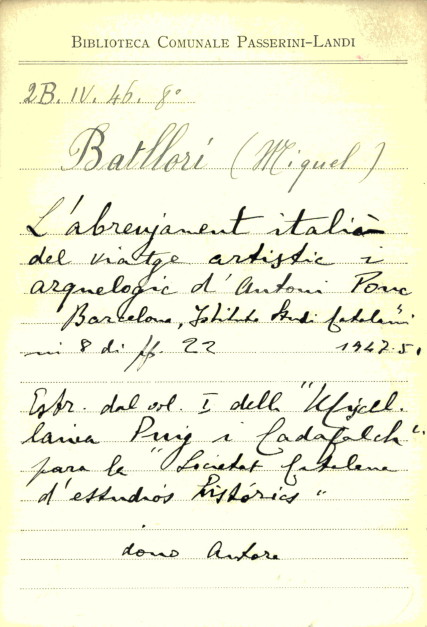 BIBLIOTECA COMUNALE PASSERINI-LANDI
2B. IV. 46. 8º
Batllorí (Miquel)
L'abreujament italià
del viatge artistic i
arquelogic d'Antoni Ponc
Barcelona, Istituto Studi Catalani
in 8 di pp. 22 1947.51
Estr. dal vol. I della "Miscel-
lanea Puig i Cadafalch"
para la "Societat Catalana
d'estudios històrics"
dono Autore